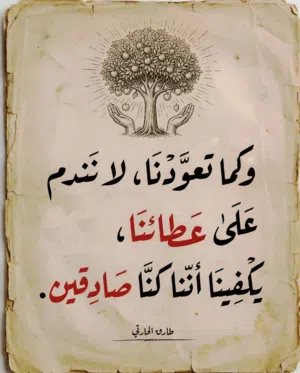 وكما تعوَّدْنَا، لا نَندم
عَلَىٰ عَطائنَا،
يَكْفِينَا أنّنا كنَّا صَادِقين.
طارق الحارثي